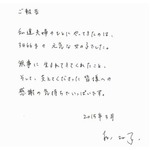 ご報告
私達夫婦のもとにやってきたのは、
元気な女の子でした。
無事に生まれてきてくれたこと、
そして、支えてくださった皆様への
感謝の気持ちでいっぱいです。
2015年5月